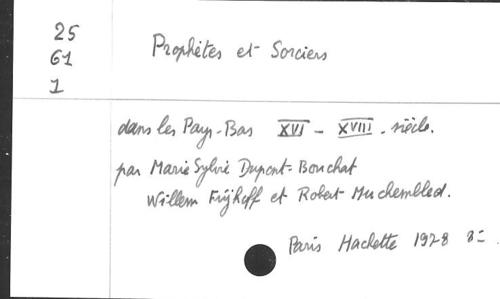 25
61
1
Prophètes et Sorciers
dans les Pays-Bas XVI - XVIII. siècle.
par Marie Sylvie Dupont-Bouchat
Willem Frijhoff et Robert Muchembled.
Paris Hachette 1978 8=